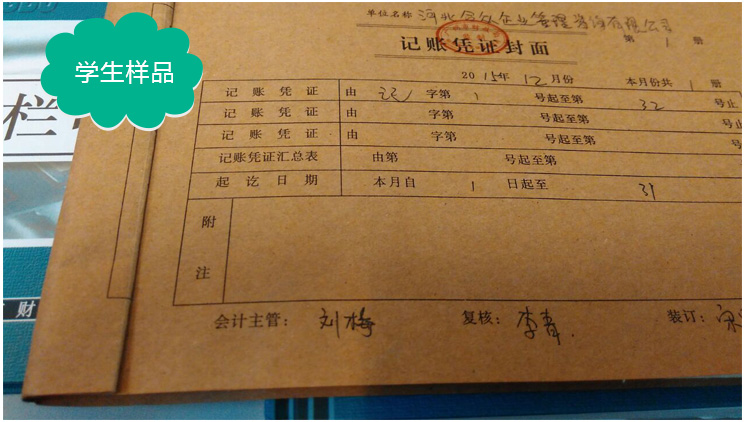 学生样品
单位名称 河北 企业管理咨询有限公司
记账凭证封面
第 1 册
2015年 12月份 本月份共 1 册
记账凭证 由 字第 1 号起至第 32 号止
记账凭证 由 字第 号起至第 号止
记账凭证 由 字第 号起至第 号
记账凭证汇总表 由第 号起至第
起讫日期 本月自 1 日起至 31
附注
会计主管: 刘梅 复核: 李青 装订: 宋
栏
财